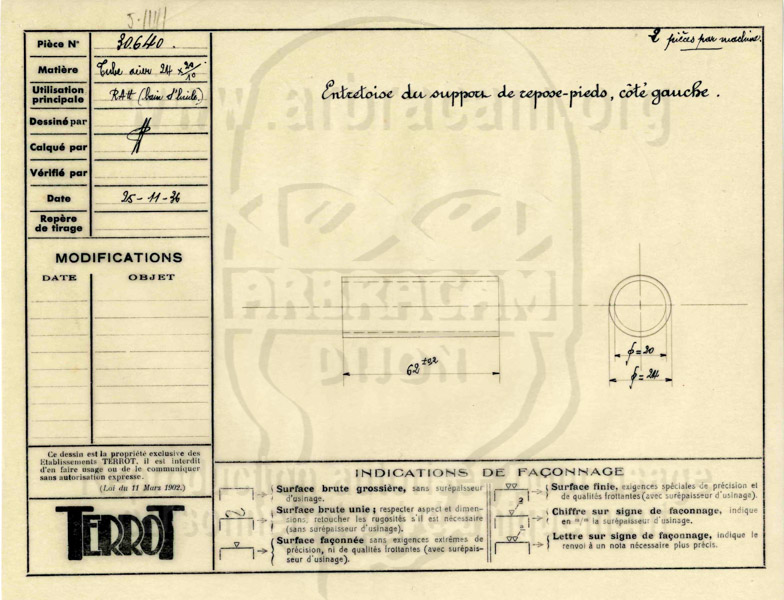 2 pièces par machine.
Pièce N° 30.640.
Matière Tube acier 24 × 20/10
Utilisation principale RAtt (bain d'huile)
Dessiné par
Calqué par
Vérifié par
Date 25-11-36
Repère de tirage
Entretoise du support de repose-pieds, côté gauche.
MODIFICATIONS
DATE OBJET
62
ϕ=20
ϕ=24
Ce dessin est la propriété exclusive des
Etablissements TERROT, il est interdit
d'en faire usage ou de le communiquer
sans autorisation expresse.
(Loi du 11 Mars 1902.)
TERROT
INDICATIONS DE FAÇONNAGE
Surface brute grossière, sans surépaisseur
d'usinage.
Surface brute unie; respecter aspect et dimen-
sions, retoucher les rugosités s'il est nécessaire
(sans surépaisseur d'usinage).
Surface façonnée sans exigences extrêmes de
précision, ni de qualités frottantes (avec surépais-
seur d'usinage).
Surface finie, exigences spéciales de précision et
de qualités frottantes (avec surépaisseur d'usinage).
Chiffre sur signe de façonnage, indique
en m/m la surépaisseur d'usinage.
Lettre sur signe de façonnage, indique le
renvoi à un nota nécessaire plus précis.
www.arbracam.org
ARBRACAM
DIJON